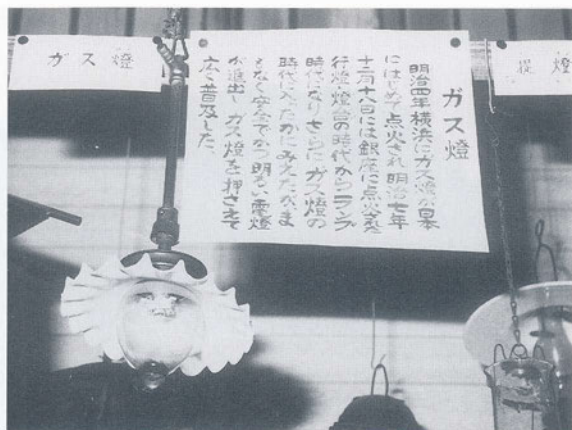 提燈
ガス燈
明治四年横浜にガス燈が日本
にはじめて点火され明治七年
十二月十八日には銀座に点火された
行燈・燈台の時代からランプ
時代になりさらにガス燈の
時代に入ったかにみえたが、ま
もなく安全でかつ明るい電燈
が進出しガス燈を押さえて
広く普及した。
ガス燈